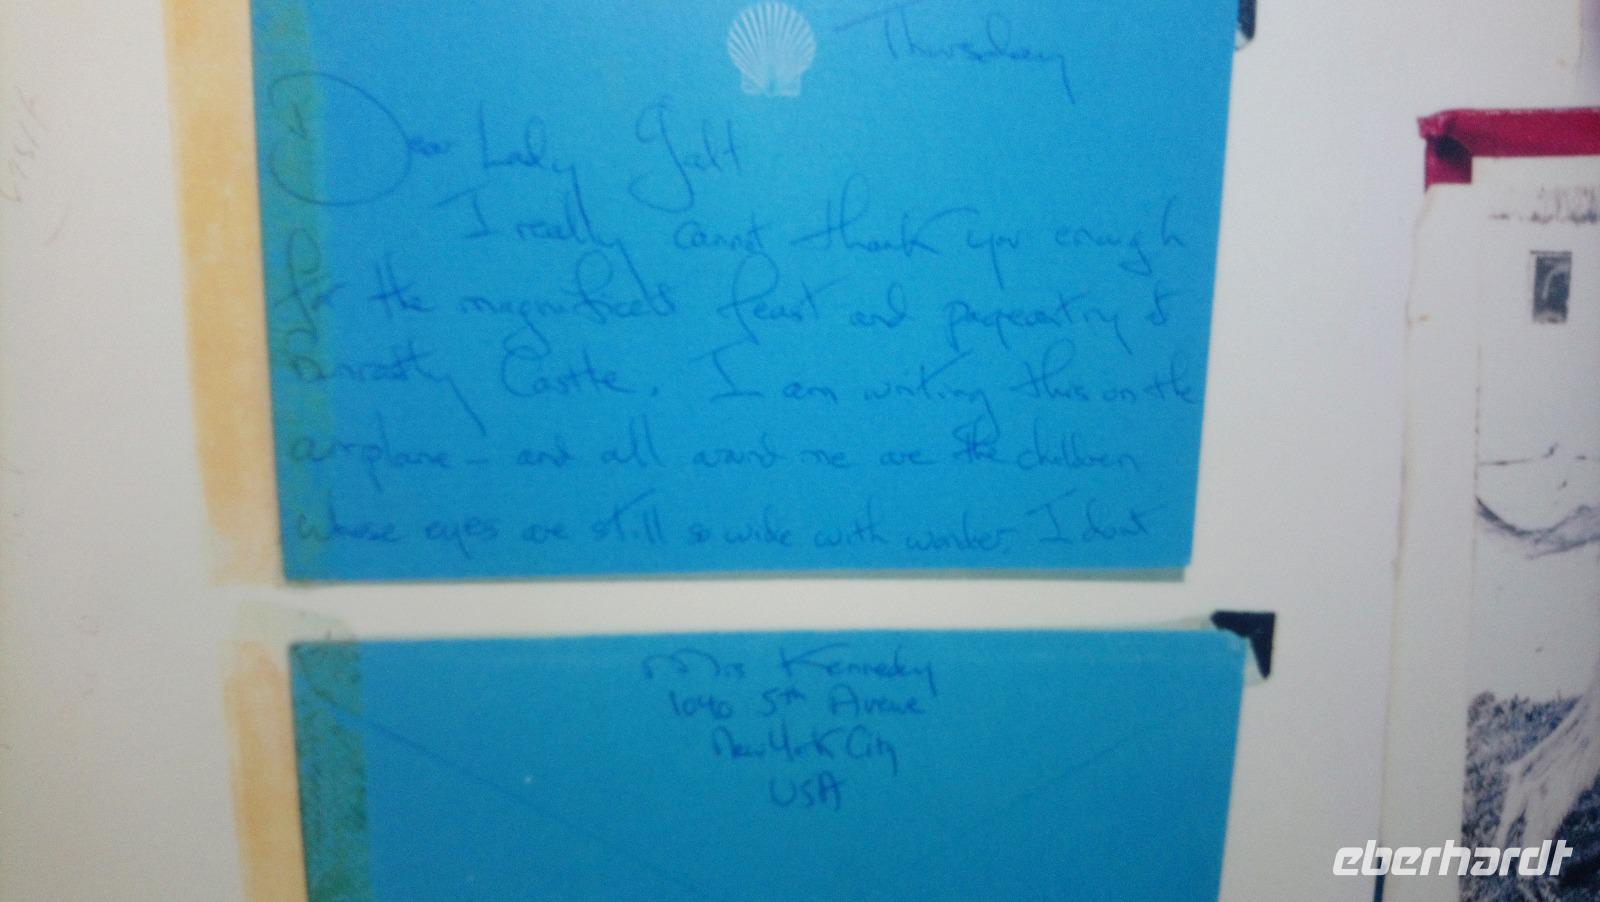 Thursday
Dear Lady Galt
I really cannot thank you enough
for the magnificent feast and pageantry of
Bunratty Castle. I am writing this on the
airplane - and all around me are the children
whose eyes are still so wide with wonder. I dont
Mrs Kennedy
1040 5th Avenue
New York City
USA
eberhardt